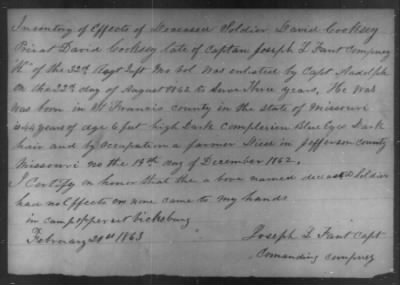 Inventory of Effects of Deceased Soldier David Cooksey
Privat David Cooksey late of Captain Joseph L Fant Compney
"K" of the 32d Regt Inft Mo Vol was enlisted by Capt Rudolph
on the 22d day of August 1862 to Serve Three years, He was
was born in St Francis county in the state of Missouri
is 44 years of age 6 feet high Dark complexion Blue Eyes Dark
hair and by occupation a farmer Died in Jefferson county
Missouri no the 19th day of December 1862.
I Certify on honor that the a bove named deceased Soldier
had no Effects or none came to my hands
in camp opperset Vicksburg
February 20th 1863
Joseph L Fant Capt
Comanding compney